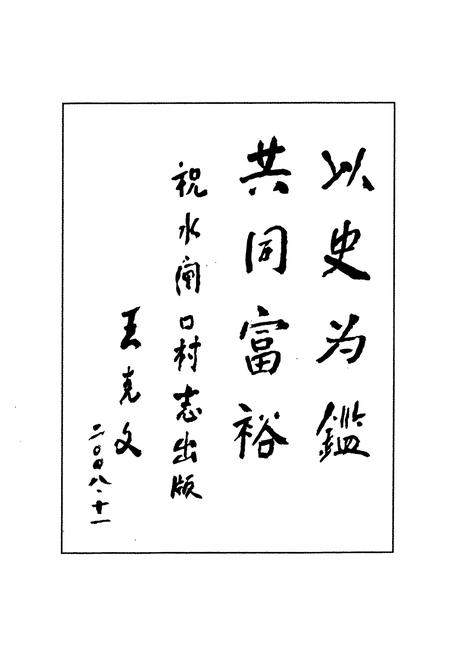 以史为鑑
共同富裕
祝水闸口村志出版
王克文
二〇〇八.十一